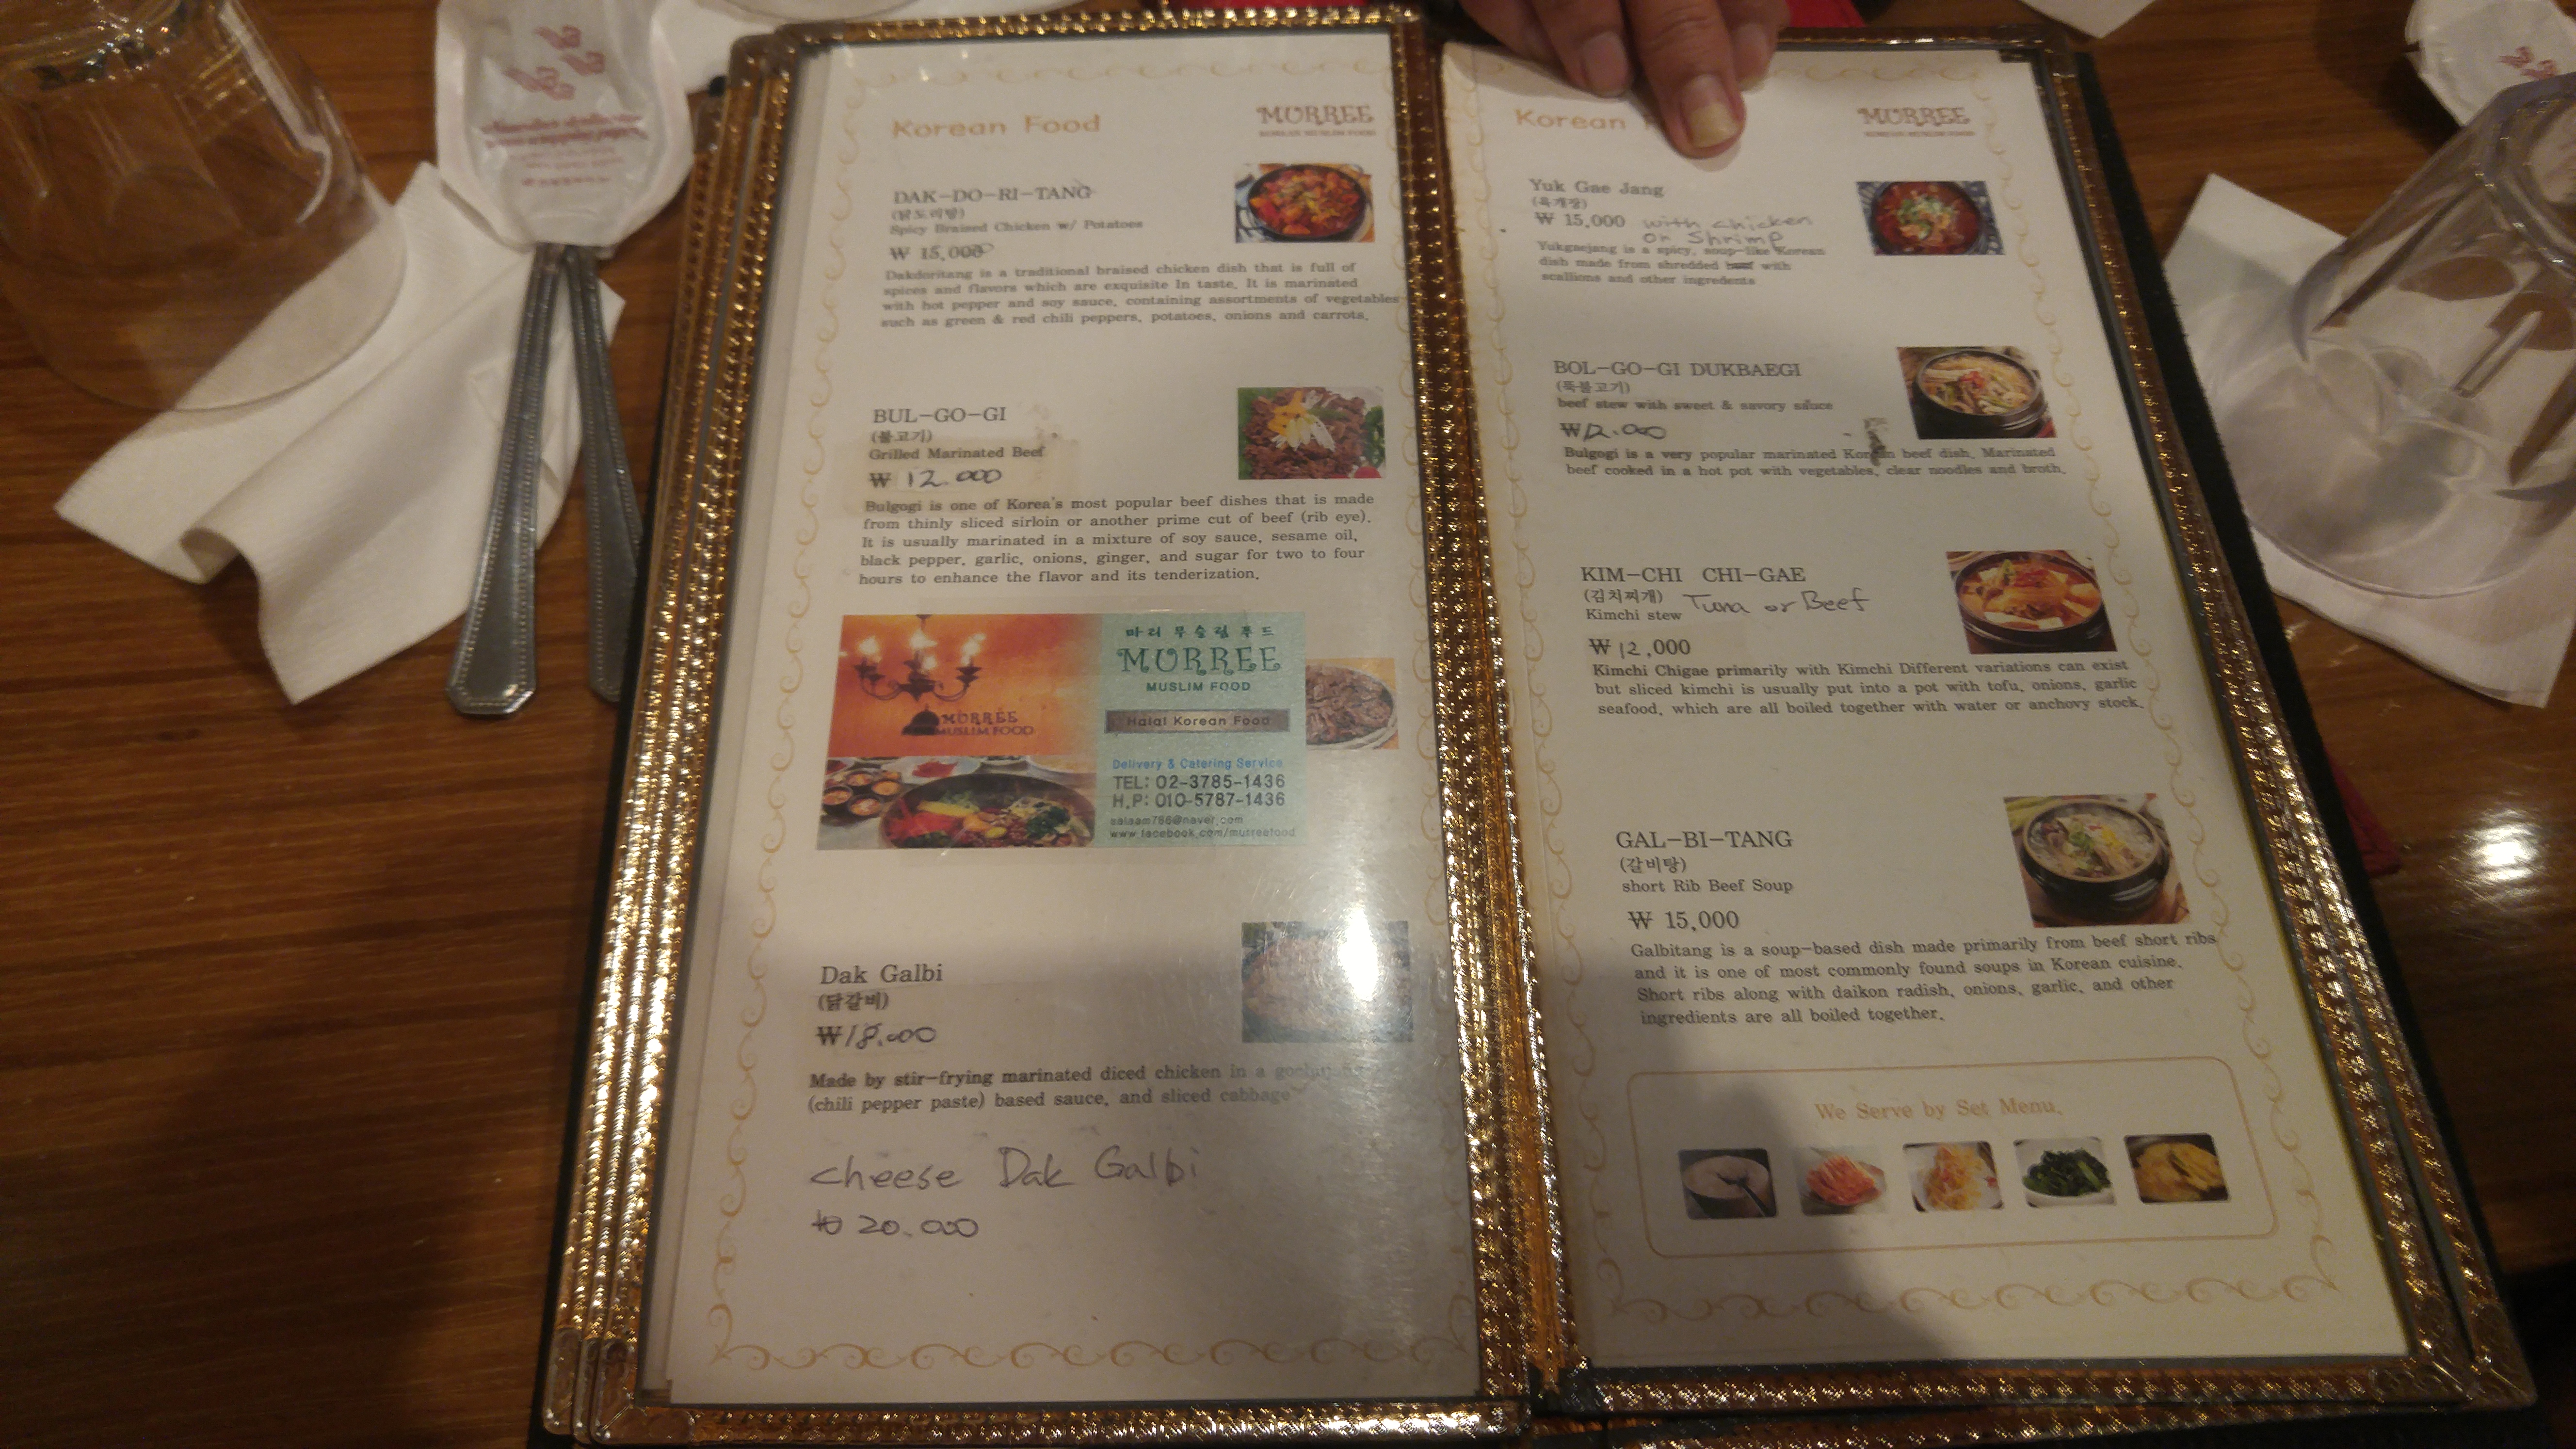 Korean Food
MURREE
KOREAN MUSLIM FOOD
DAK-DO-RI-TANG
(닭도리탕)
Spicy Braised Chicken w/ Potatoes
₩ 15,000
Dakdoritang is a traditional braised chicken dish that is full of
spices and flavors which are exquisite In taste. It is marinated
with hot pepper and soy sauce, containing assortments of vegetables
such as green & red chili peppers, potatoes, onions and carrots.
BUL-GO-GI
(불고기)
Grilled Marinated Beef
₩ 12.000
Bulgogi is one of Korea's most popular beef dishes that is made
from thinly sliced sirloin or another prime cut of beef (rib eye).
It is usually marinated in a mixture of soy sauce, sesame oil,
black pepper, garlic, onions, ginger, and sugar for two to four
hours to enhance the flavor and its tenderization.
마리 무슬림 푸드
MURREE
MUSLIM FOOD
Halal Korean Food
MURREE
MUSLIM FOOD
Delivery & Catering Service
TEL: 02-3785-1436
H.P: 010-5787-1436
salaam786@naver.com
www.facebook.com/murreefood
Dak Galbi
(닭갈비)
₩18.000
Made by stir-frying marinated diced chicken in a gochujang
(chili pepper paste) based sauce, and sliced cabbage
cheese Dak Galbi
₩ 20.000
Korean
MURREE
KOREAN MUSLIM FOOD
Yuk Gae Jang
(육개장)
₩ 15,000 with chicken
or Shrimp
Yukgaejang is a spicy, soup-like Korean
dish made from shredded beef with
scallions and other ingredents
BOL-GO-GI DUKBAEGI
(뚝불고기)
beef stew with sweet & savory sauce
₩12.000
Bulgogi is a very popular marinated Korean beef dish. Marinated
beef cooked in a hot pot with vegetables, clear noodles and broth.
KIM-CHI CHI-GAE
(김치찌개) Tuna or Beef
Kimchi stew
₩12,000
Kimchi Chigae primarily with Kimchi Different variations can exist
but sliced kimchi is usually put into a pot with tofu, onions, garlic
seafood, which are all boiled together with water or anchovy stock.
GAL-BI-TANG
(갈비탕)
short Rib Beef Soup
₩ 15,000
Galbitang is a soup-based dish made primarily from beef short ribs
and it is one of most commonly found soups in Korean cuisine.
Short ribs along with daikon radish, onions, garlic, and other
ingredients are all boiled together.
We Serve by Set Menu.